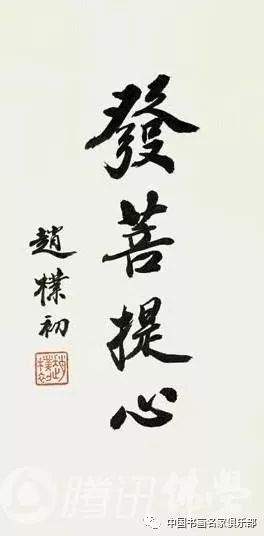 發菩提心
趙樸初
趙樸初
腾讯佛学
中国书画名家俱乐部